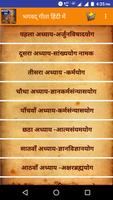 4:35
भगवद् गीता हिंदी में
पहला अध्याय-अर्जुनविषादयोग
दूसरा अध्याय-सांख्ययोग नामक
तीसरा अध्याय -कर्मयोग
चौथा अध्याय -ज्ञानकर्मसंन्यासयोग
पाँचवाँ अध्याय -कर्मसंन्यासयोग
छठा अध्याय -आत्मसंयमयोग
सातवाँ अध्याय -ज्ञानविज्ञानयोग
आठवाँ अध्याय -अक्षरब्रह्मयोग